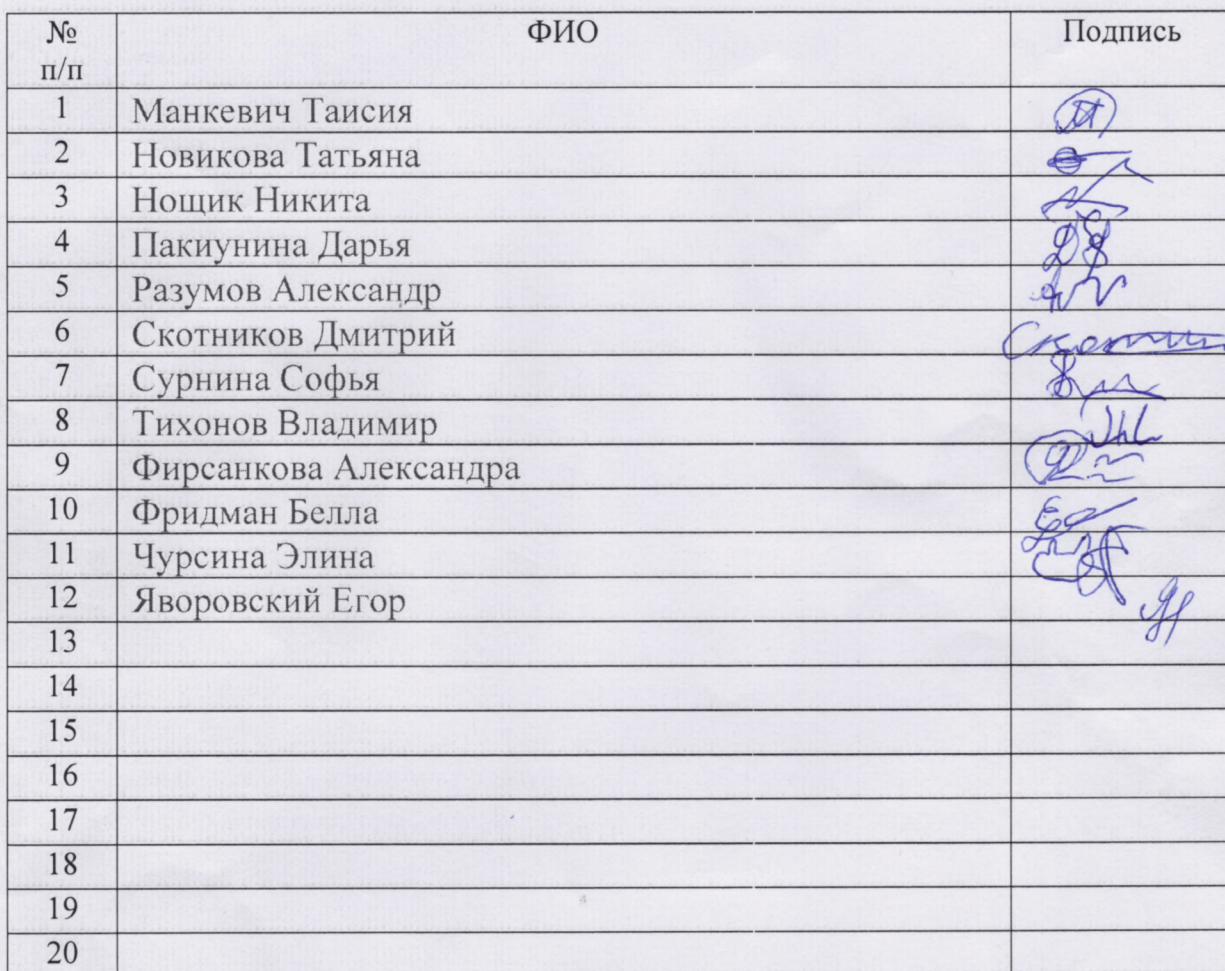 № п/п ФИО Подпись
1 Манкевич Таисия
2 Новикова Татьяна
3 Нощик Никита
4 Пакиунина Дарья
5 Разумов Александр
6 Скотников Дмитрий
7 Сурнина Софья
8 Тихонов Владимир
9 Фирсанкова Александра
10 Фридман Белла
11 Чурсина Элина
12 Яворовский Егор
13
14
15
16
17
18
19
20